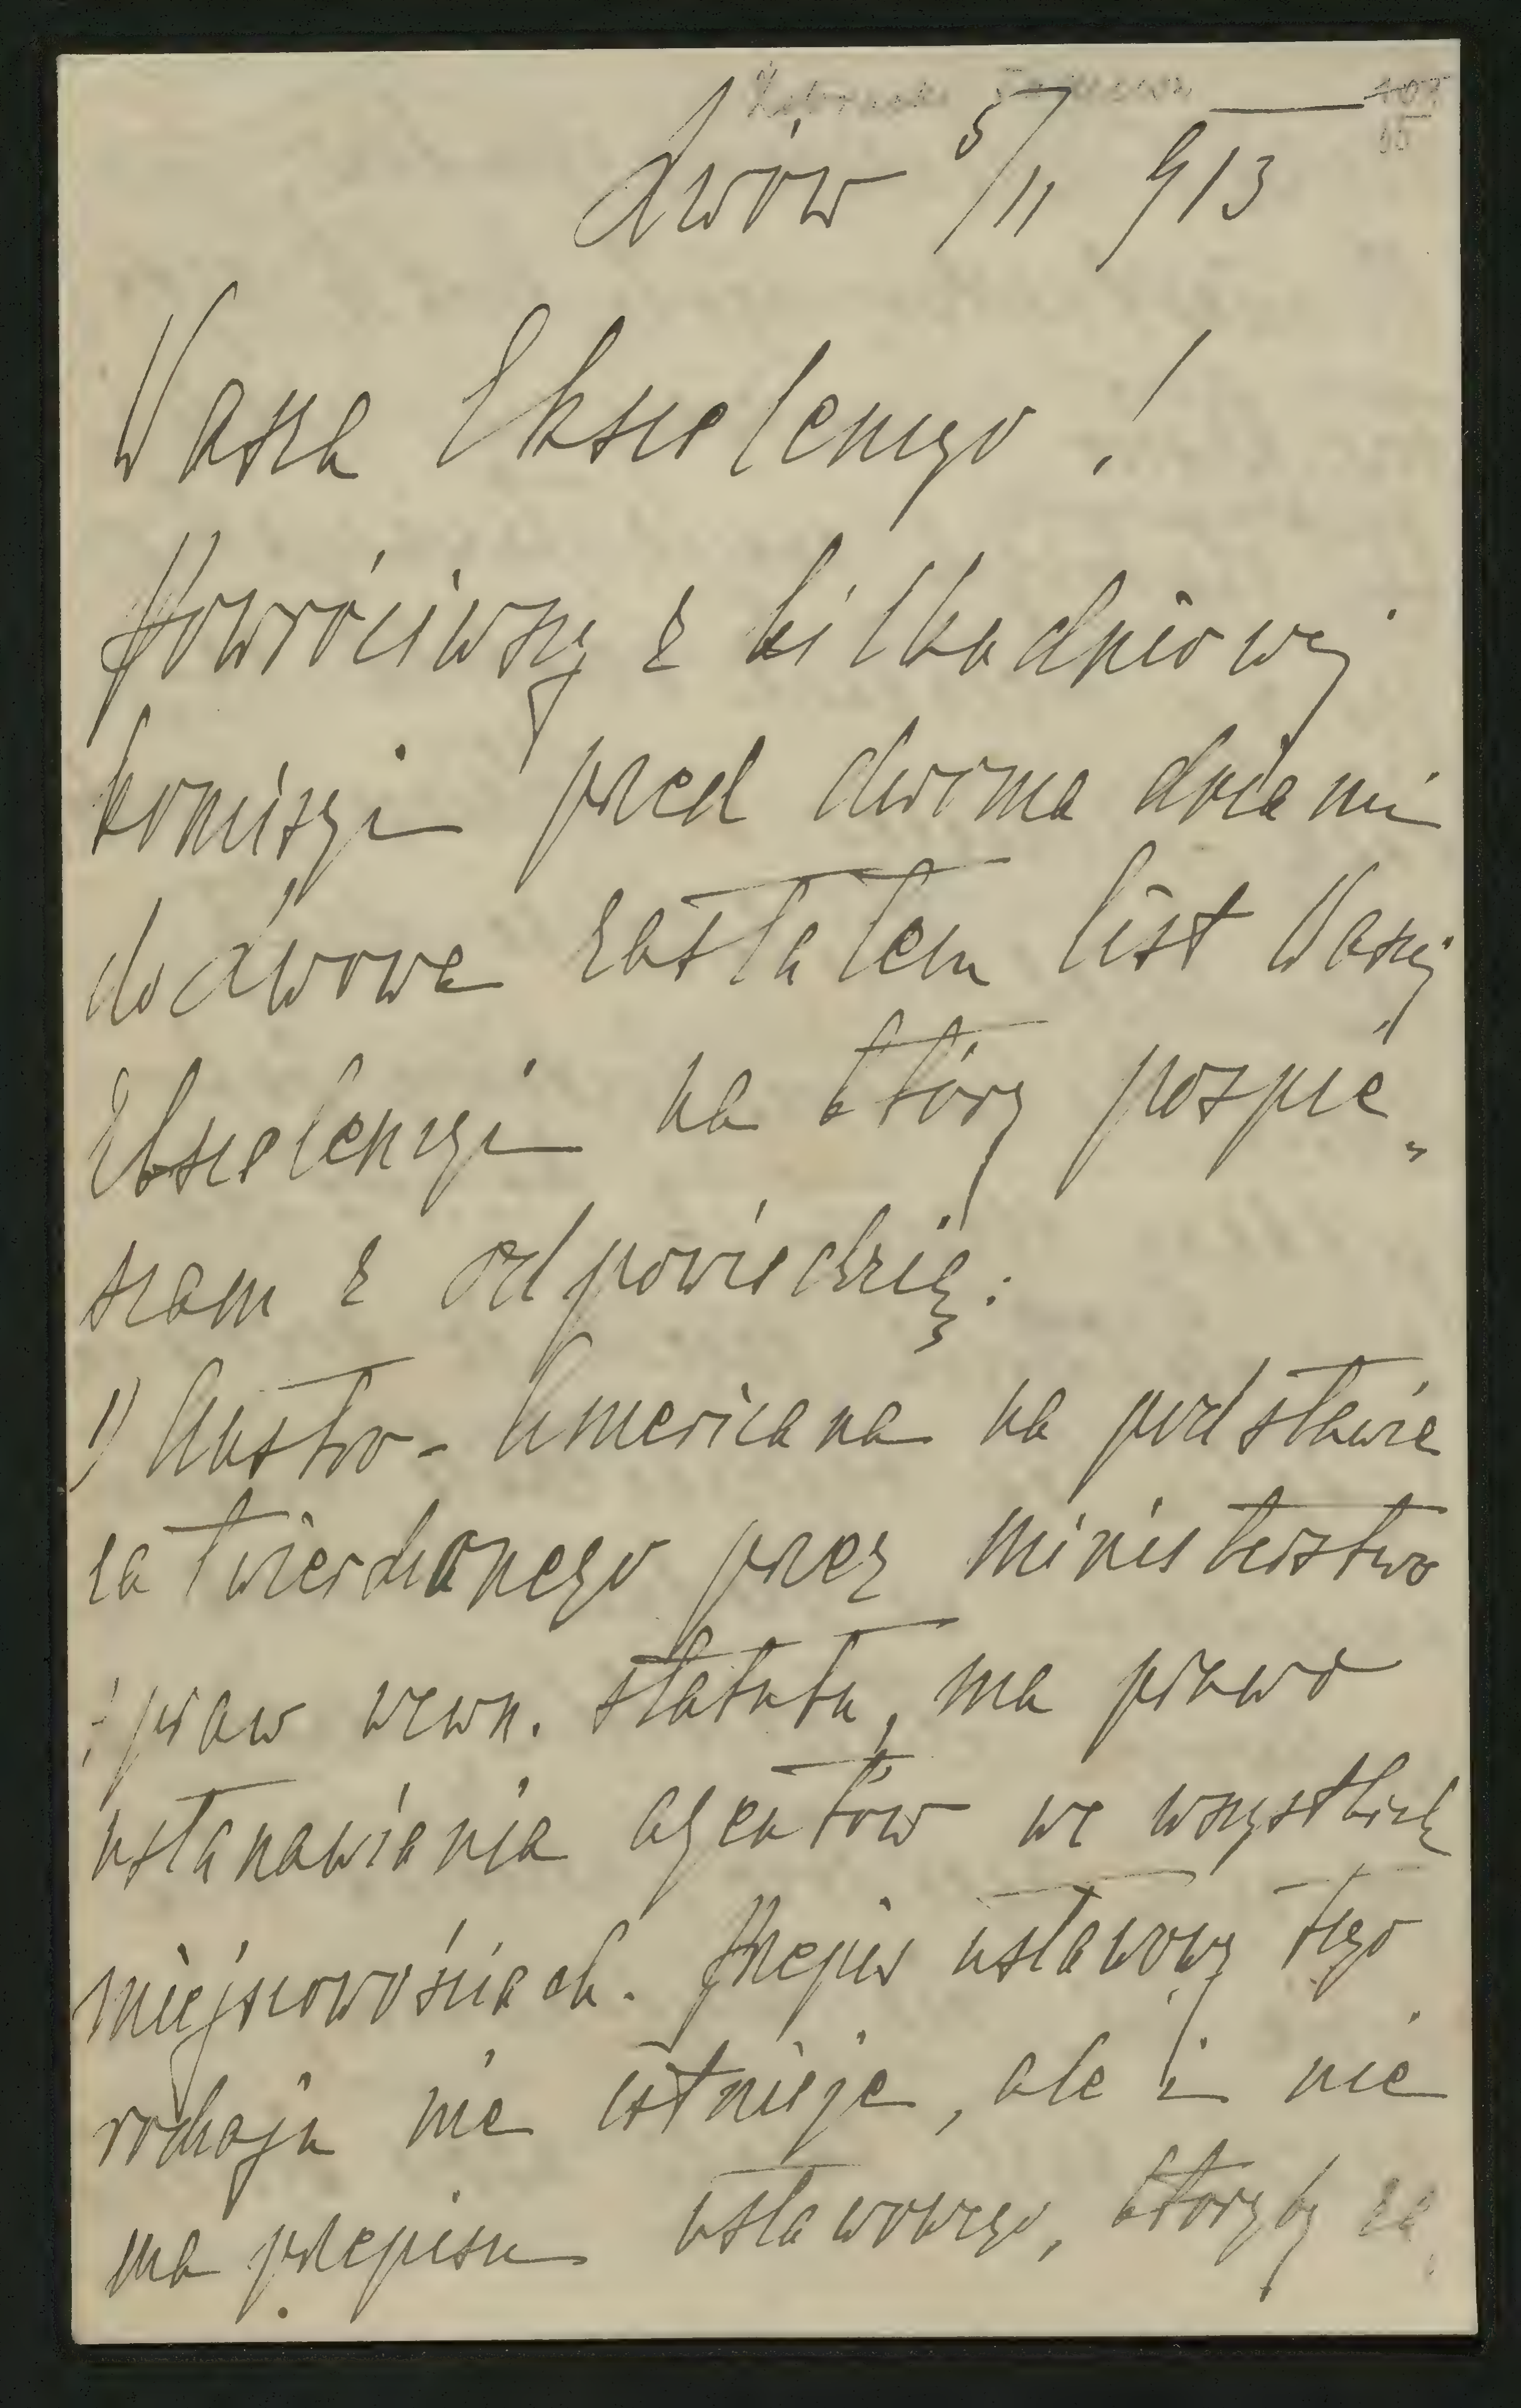 107
65
Lwów 5/11 913
Wasza Ekscelencyo!
Powróciwszy z kilkadniowej
komisyi przed dwoma dniami
do Lwowa zastałem list Waszej
Ekscelencyi na który pospie„
szam z odpowiedzią:
1) Austro-Americana na podstawie
zatwierdzonego przez ministerstwo
spraw wewn. statutu, ma prawo
ustanawiania agentów we wszystkich
miejscowościach. Przepis ustawowy tego
rodzaju nie istnieje, ale i nie
ma przepisu ustawowego, któryby za„